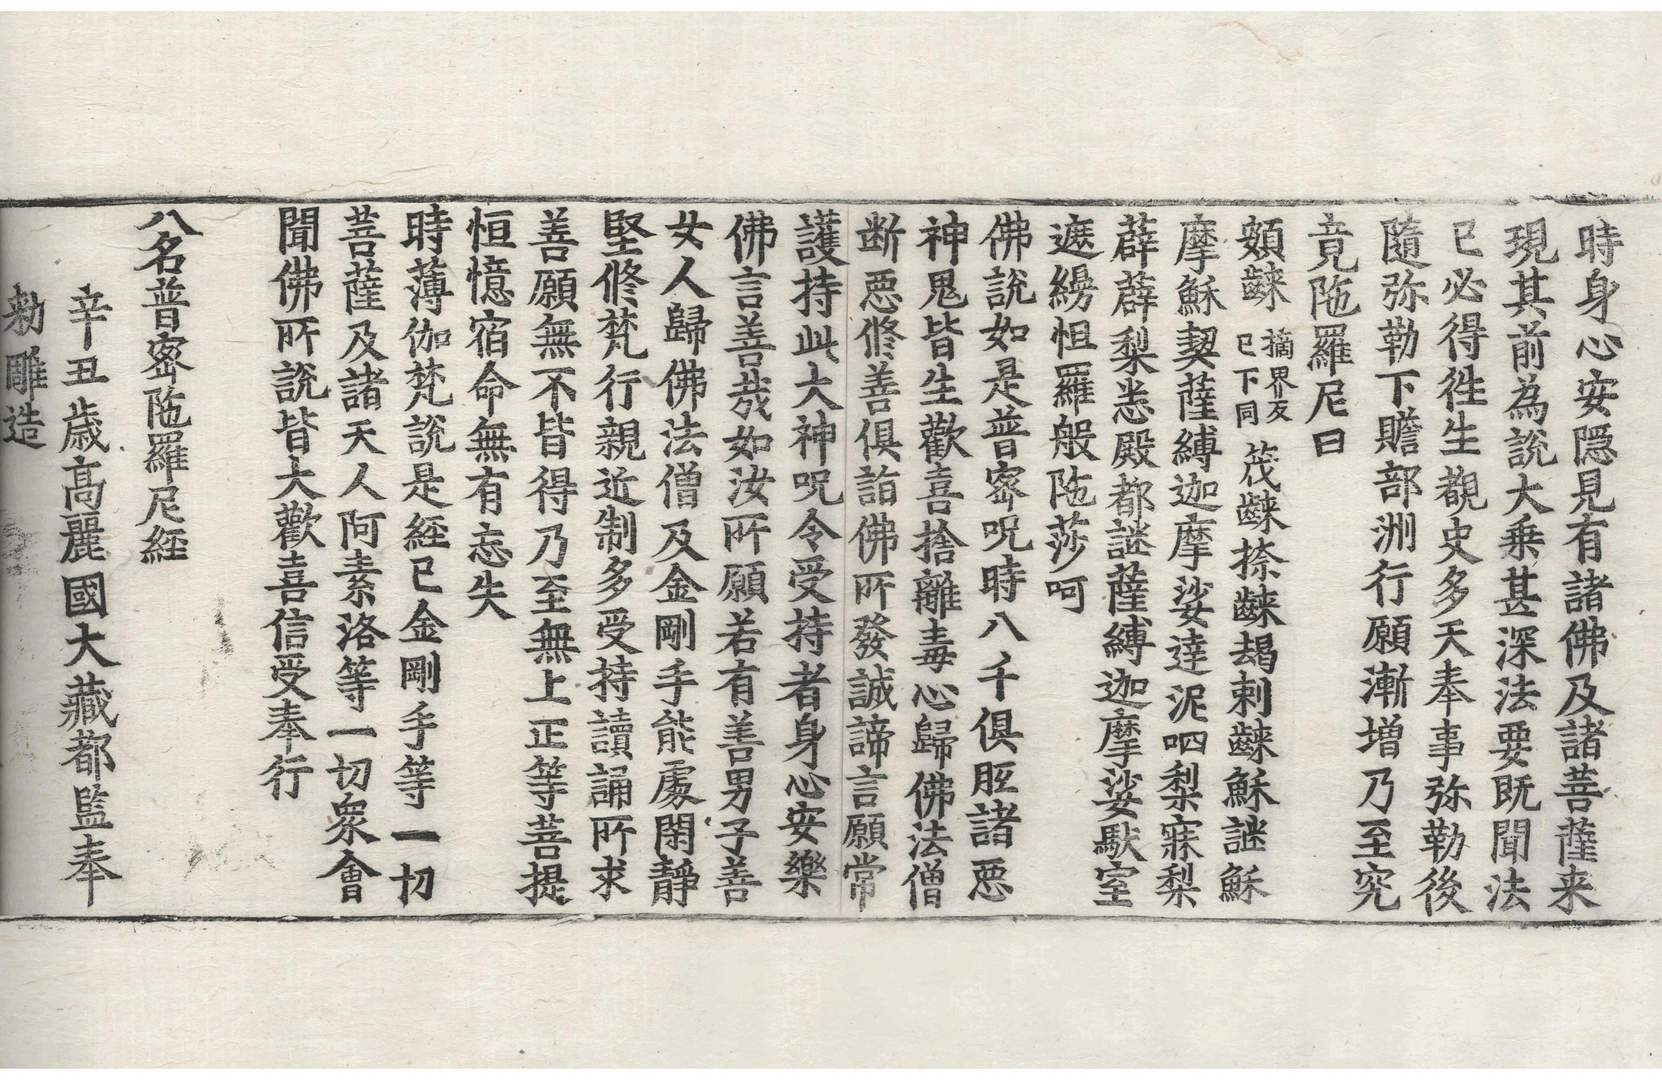 時身心安隱見有諸佛及諸菩薩来
現其前為說大乗甚深法要既聞法
已必得徃生覩史多天奉事弥勒後
隨弥勒下贍部洲行願漸增乃至究
竟陁羅尼曰
頞䶩摘界反已下同茷䶩捺䶩朅剌䶩穌謎穌
摩穌㓶薩縛迦摩娑達泥呬梨寐梨
薜薜梨悉殿都謎薩縛迦摩娑馱室
遮繞怛羅般陁莎呵
佛說如是普密呪時八千俱胝諸惡
神鬼皆生歡喜捨離毒心歸佛法僧
断惡脩善俱詣佛所發誠諦言願常
護持此大神呪令受持者身心安樂
佛言善哉如汝所願若有善男子善
女人歸佛法僧及金剛手能處閑靜
堅脩梵行親近制多受持讀誦所求
善願無不皆得乃至無上正等菩提
恒憶宿命無有忘失
時薄伽梵說是經已金剛手等一切
菩薩及諸天人阿素洛等一切衆會
聞佛所說皆大歡喜信受奉行
八名普密陁羅尼經
辛丑歳高麗國大藏都監奉
勑雕造